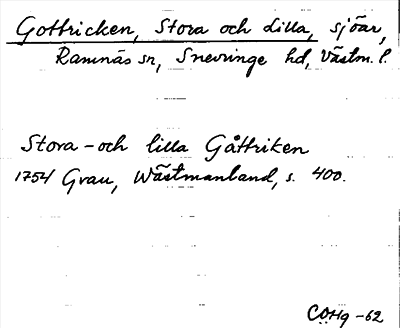 Gottricken, Stora och Lilla, sjöar,
Ramnäs sn, Snevringe hd, Västm. l.
Stora - och lilla Gåttriken
1754 Grau, Wästmanland, s. 400.
CÖHg -62